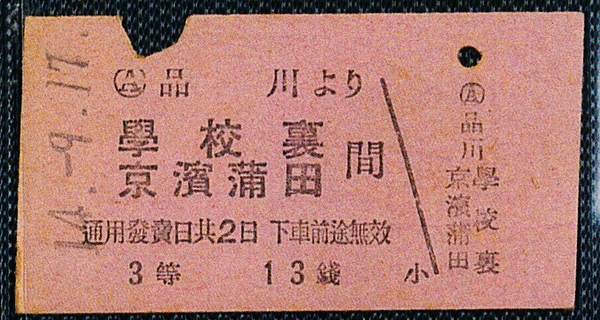 14.-9.17.
Ⓐ品川より
學校裏
京濱蒲田
間
通用發賣日共2日 下車前途無效
3等 13錢 小
Ⓐ品川
學校裏
京濱蒲田